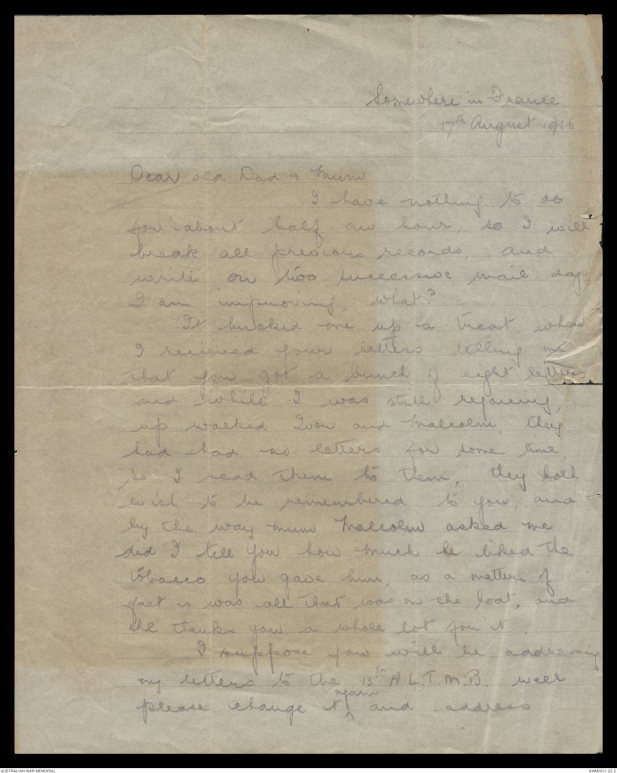 Somewhere in France
17th August 1916
Dear old Dad & Mum
I have nothing to do
for about half an hour, so I will
break all previous records, and
write on two successive mail days
I am improving, what?
It bucked me up a treat, when
I recieved your letters telling me
that you got a bunch of eight letters
and while I was still rejoicing,
up walked Ivor and Malcolm, they
had had no letters for some time,
so I read them to them, they both
wish to be remembered to you, and
by the way mum Malcolm asked me
did I tell you how much he liked the
tobacco you gave him, as a matter of
fact is was all that was on the boat, and
he thanks you a whole lot for it.
I suppose you will be addressing
my letters to the 15th A.L.T.M.B. well
please change it again and address
AUSTRALIAN WAR MEMORIAL